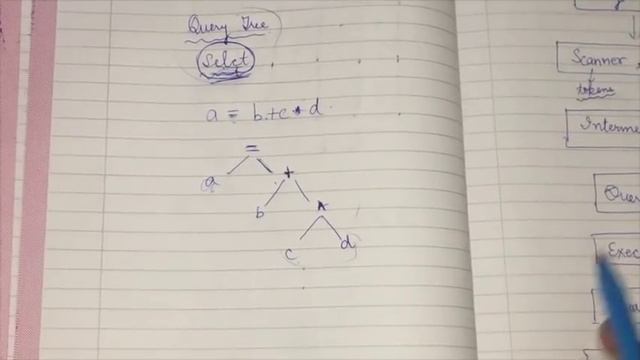 Query Tree
Selct
a = b+c*d
=
a +
b *
c d
Scanner
tokens
Interme
Quer
Exec